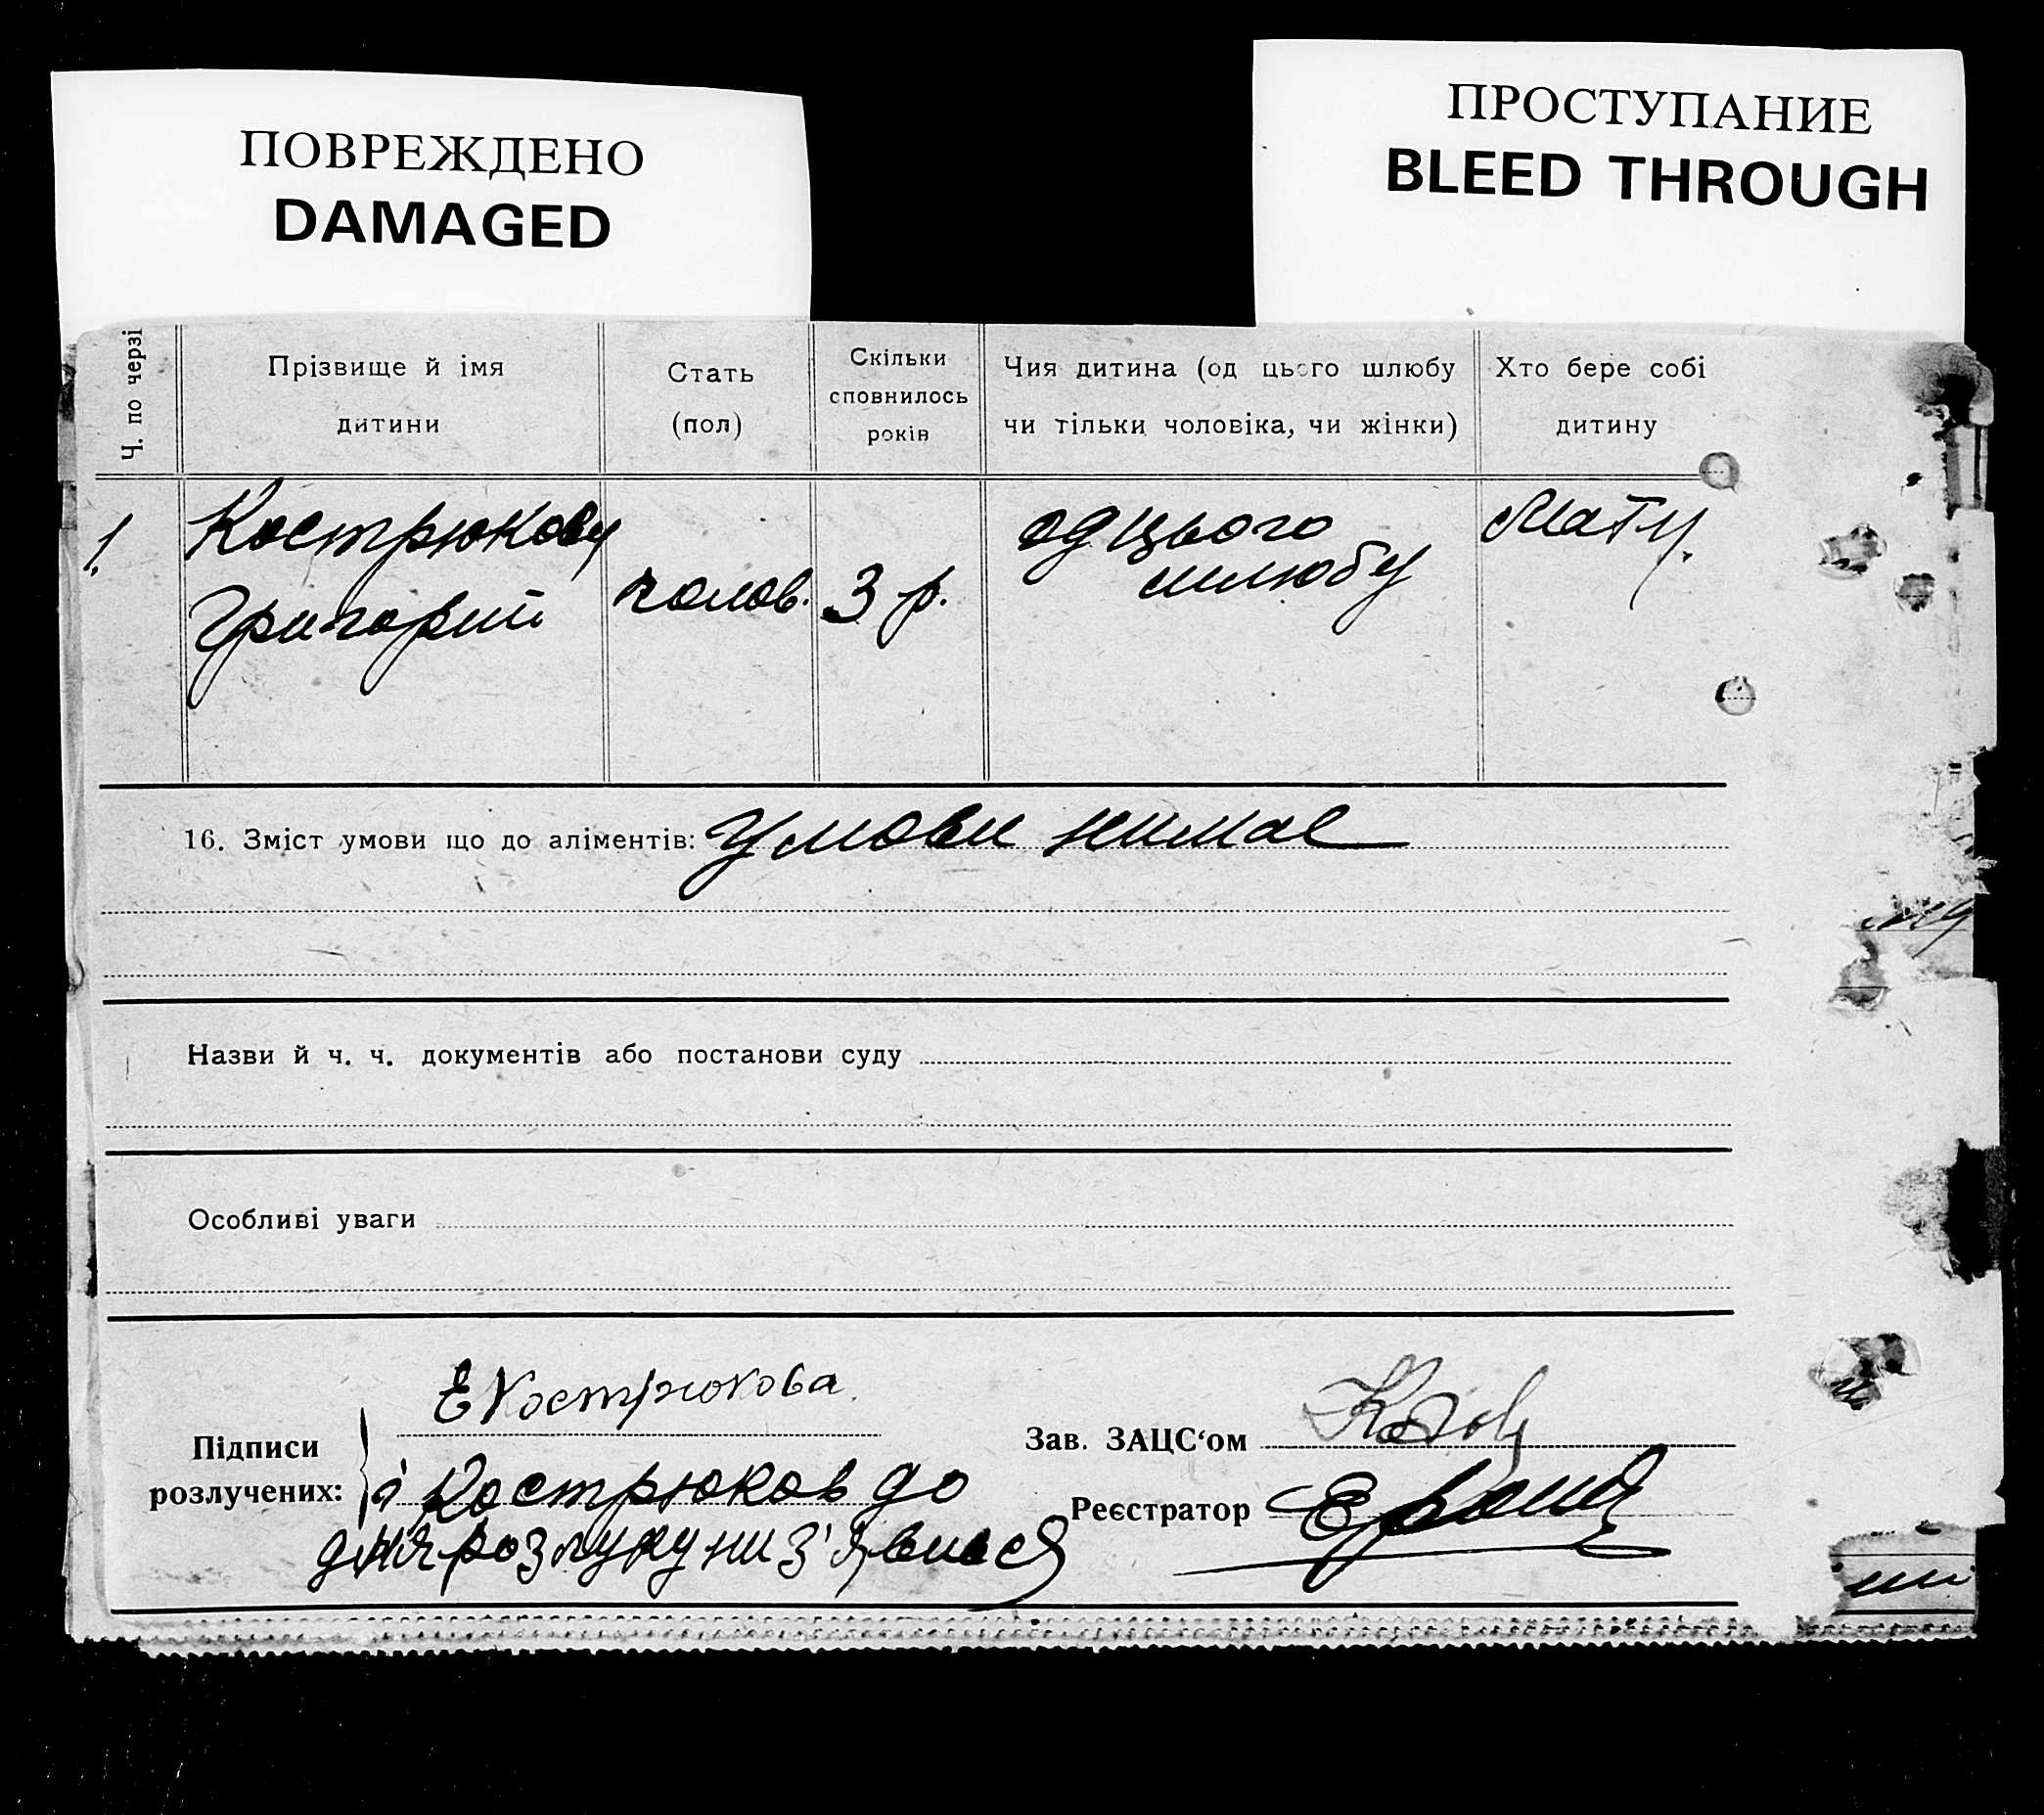 ПОВРЕЖДЕНО
DAMAGED
ПРОСТУПАНИЕ
BLEED THROUGH
Ч. по черзі
Прізвище й імя
дитини
Стать
(пол)
Скільки
сповнилось
років
Чия дитина (од цього шлюбу
чи тільки чоловіка, чи жінки)
Хто бере собі
дитину
1.
Кострюкову
Григорий
чолов.
3 р.
од цього
шлюбу
Мати.
16. Зміст умови що до аліментів: Умови нимае
Назви й ч. ч. документів або постанови суду
Особливі уваги
Підписи
розлучених:
Е Кострюкова.
і Кострюков до
дня розлуку ни з'явися
Зав. ЗАЦС‘ом
Реєстратор